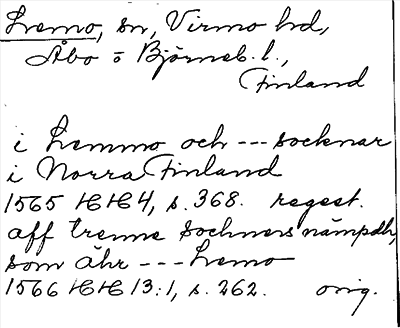 Lemo, sn, Virmo hd,
Åbo o Björneb. l.,
Finland
i Lemmo och --- socknar
i Norra Finland
1565 HH 4, s. 368. regest.
aff trenne Sochners nämpdh,
som ähr --- Lemo
1566 HH 13:1, s. 262. orig.